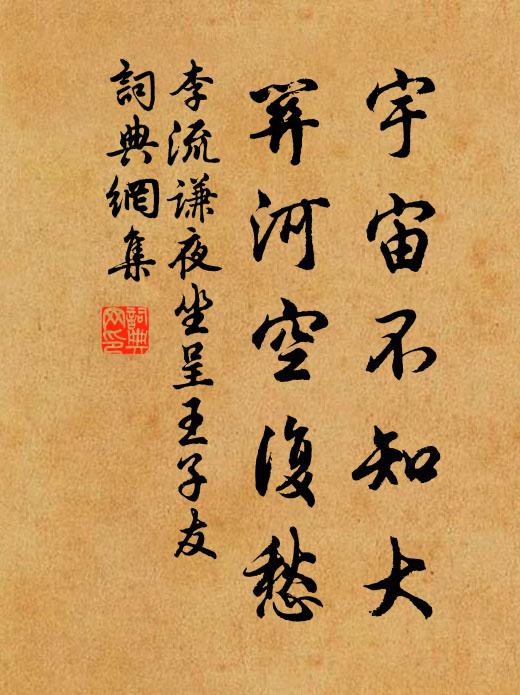 宇宙不知大
關河空復愁
李流谦夜坐呈王子友
詞典網集
詞典
网印